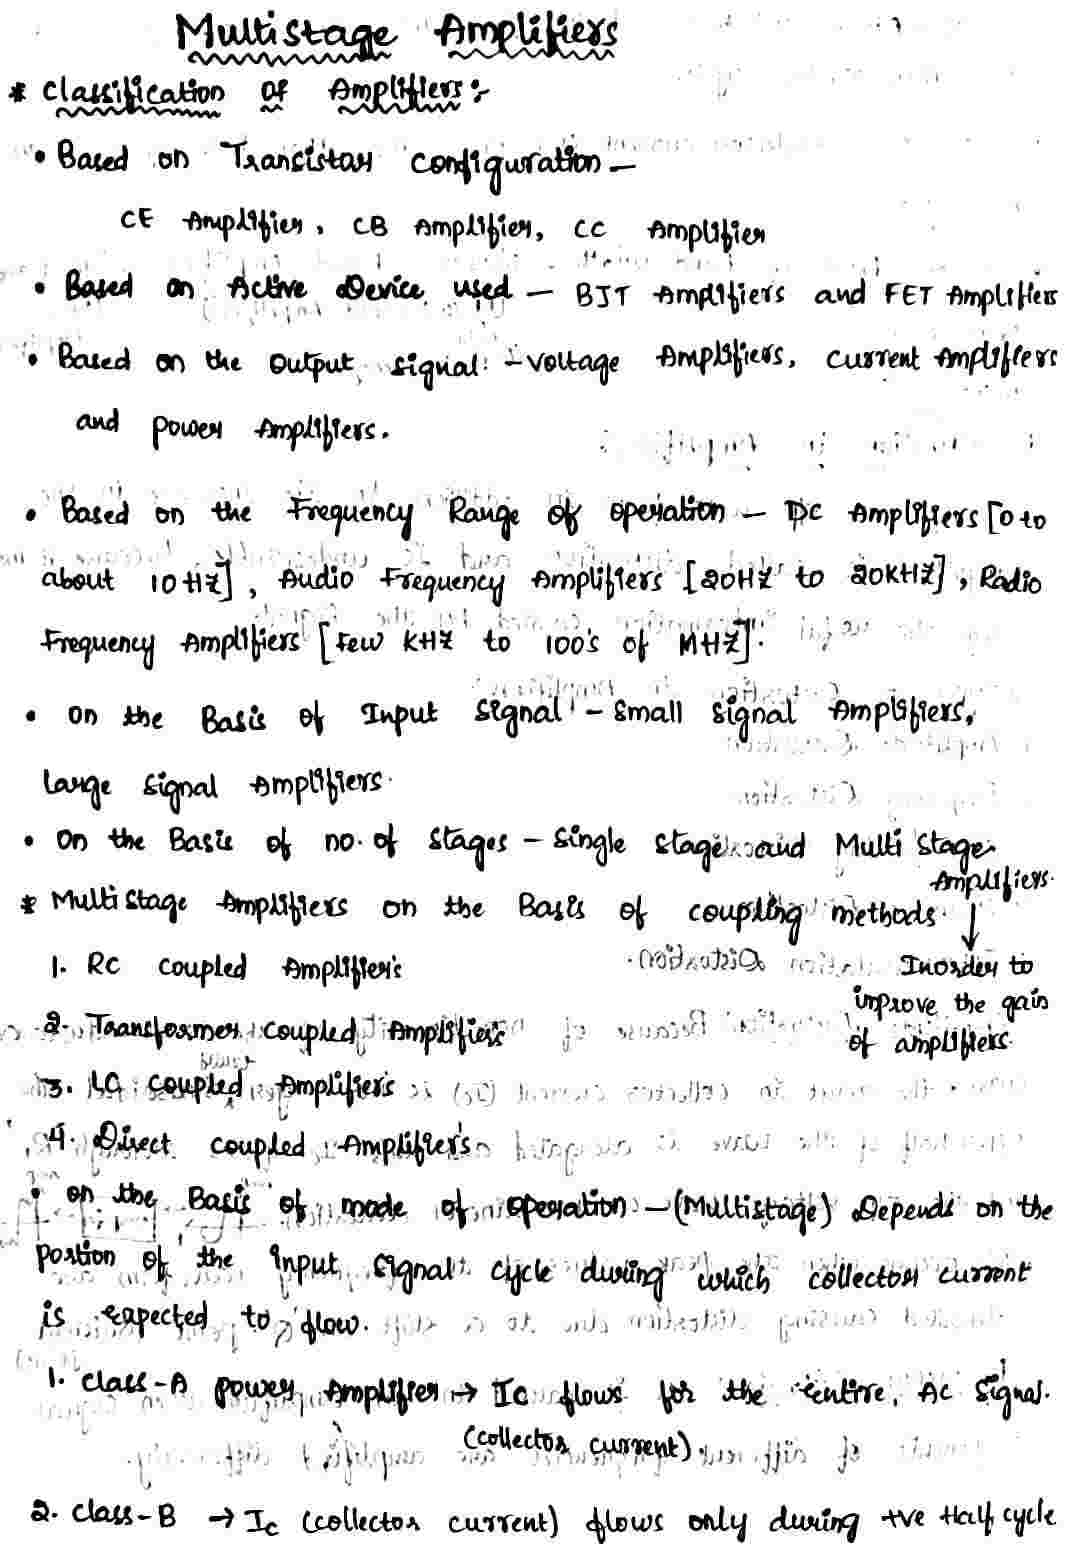 Multistage Amplifiers
* Classification of Amplifiers:-
• Based on Transistor Configuration –
CE Amplifier, CB Amplifier, CC Amplifier
• Based on Active Device used – BJT Amplifiers and FET Amplifiers
• Based on the Output signal: – Voltage Amplifiers, Current Amplifiers
and power Amplifiers.
• Based on the Frequency Range of operation – DC Amplifiers [0 to
about 10HZ], Audio Frequency Amplifiers [20HZ to 20KHZ], Radio
Frequency Amplifiers [Few KHZ to 100's of MHZ].
• on the Basis of Input Signal – Small Signal Amplifiers,
large Signal Amplifiers.
• On the Basis of no. of Stages – Single Stage and Multi Stage
Amplifiers.
↓
Inorder to
improve the gain
of amplifiers.
* Multi Stage Amplifiers on the Basis of coupling methods
1. RC coupled Amplifier's
2. Transformer coupled Amplifier's
3. LC coupled Amplifier's
4. Direct coupled Amplifier's
• on the Basis of mode of operation – (Multistage) Depends on the
portion of the input signal cycle during which collector current
is expected to flow.
1. Class-A power Amplifier → Ic flows for the entire AC Signal.
(collector current).
2. Class-B → Ic (collector current) flows only during +ve Half cycle